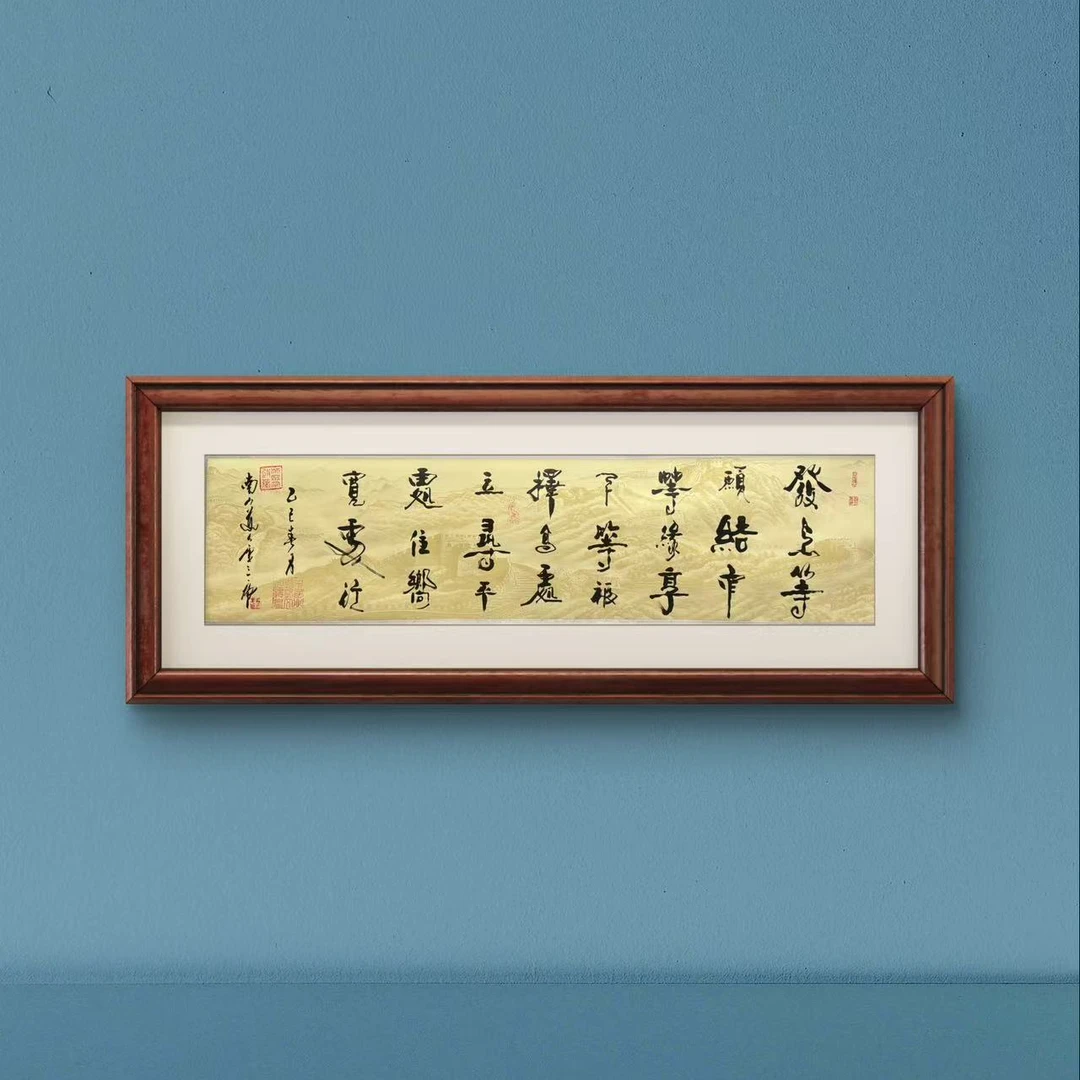 發上等
願結中
等緣享
下等福
擇高處
立尋平
處住嚮
寬處行
乙巳春月